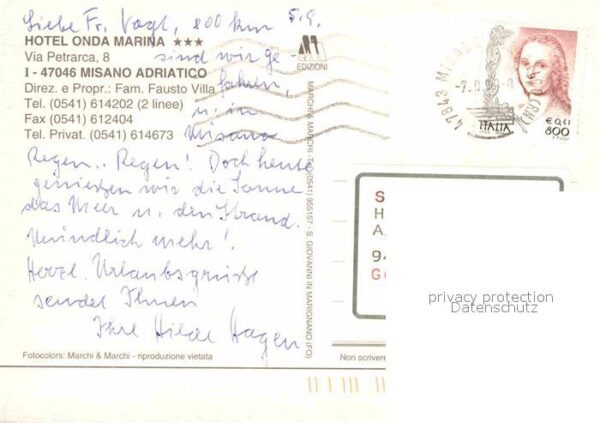 Liebe Fr. Vogt, 800 km 5.9.
HOTEL ONDA MARINA ★★★
sind wir ge-
Via Petrarca, 8
I - 47046 MISANO ADRIATICO
fahren,
Direz. e Propr.: Fam. Fausto Villa
Tel. (0541) 614202 (2 linee)
u. in
Fax (0541) 612404
Misano
Tel. Privat. (0541) 614673
Regen.. Regen! Doch heute
genießen wir die Sonne
das Meer u. den Strand.
Mündlich mehr!
Herzl. Urlaubsgrüße
sendet Ihnen
Ihre Hilde Hagen
Fotocolors: Marchi & Marchi - riproduzione vietata
EDIZIONI
MARCHI & MARCHI - T. (0541) 955157 - S. GIOVANNI IN MARIGNANO (FO)
Non scrivere
47843 MISANO
-7.9.
ITALIA
€ 0,41
800
S
H
A
94
G
privacy protection
Datenschutz